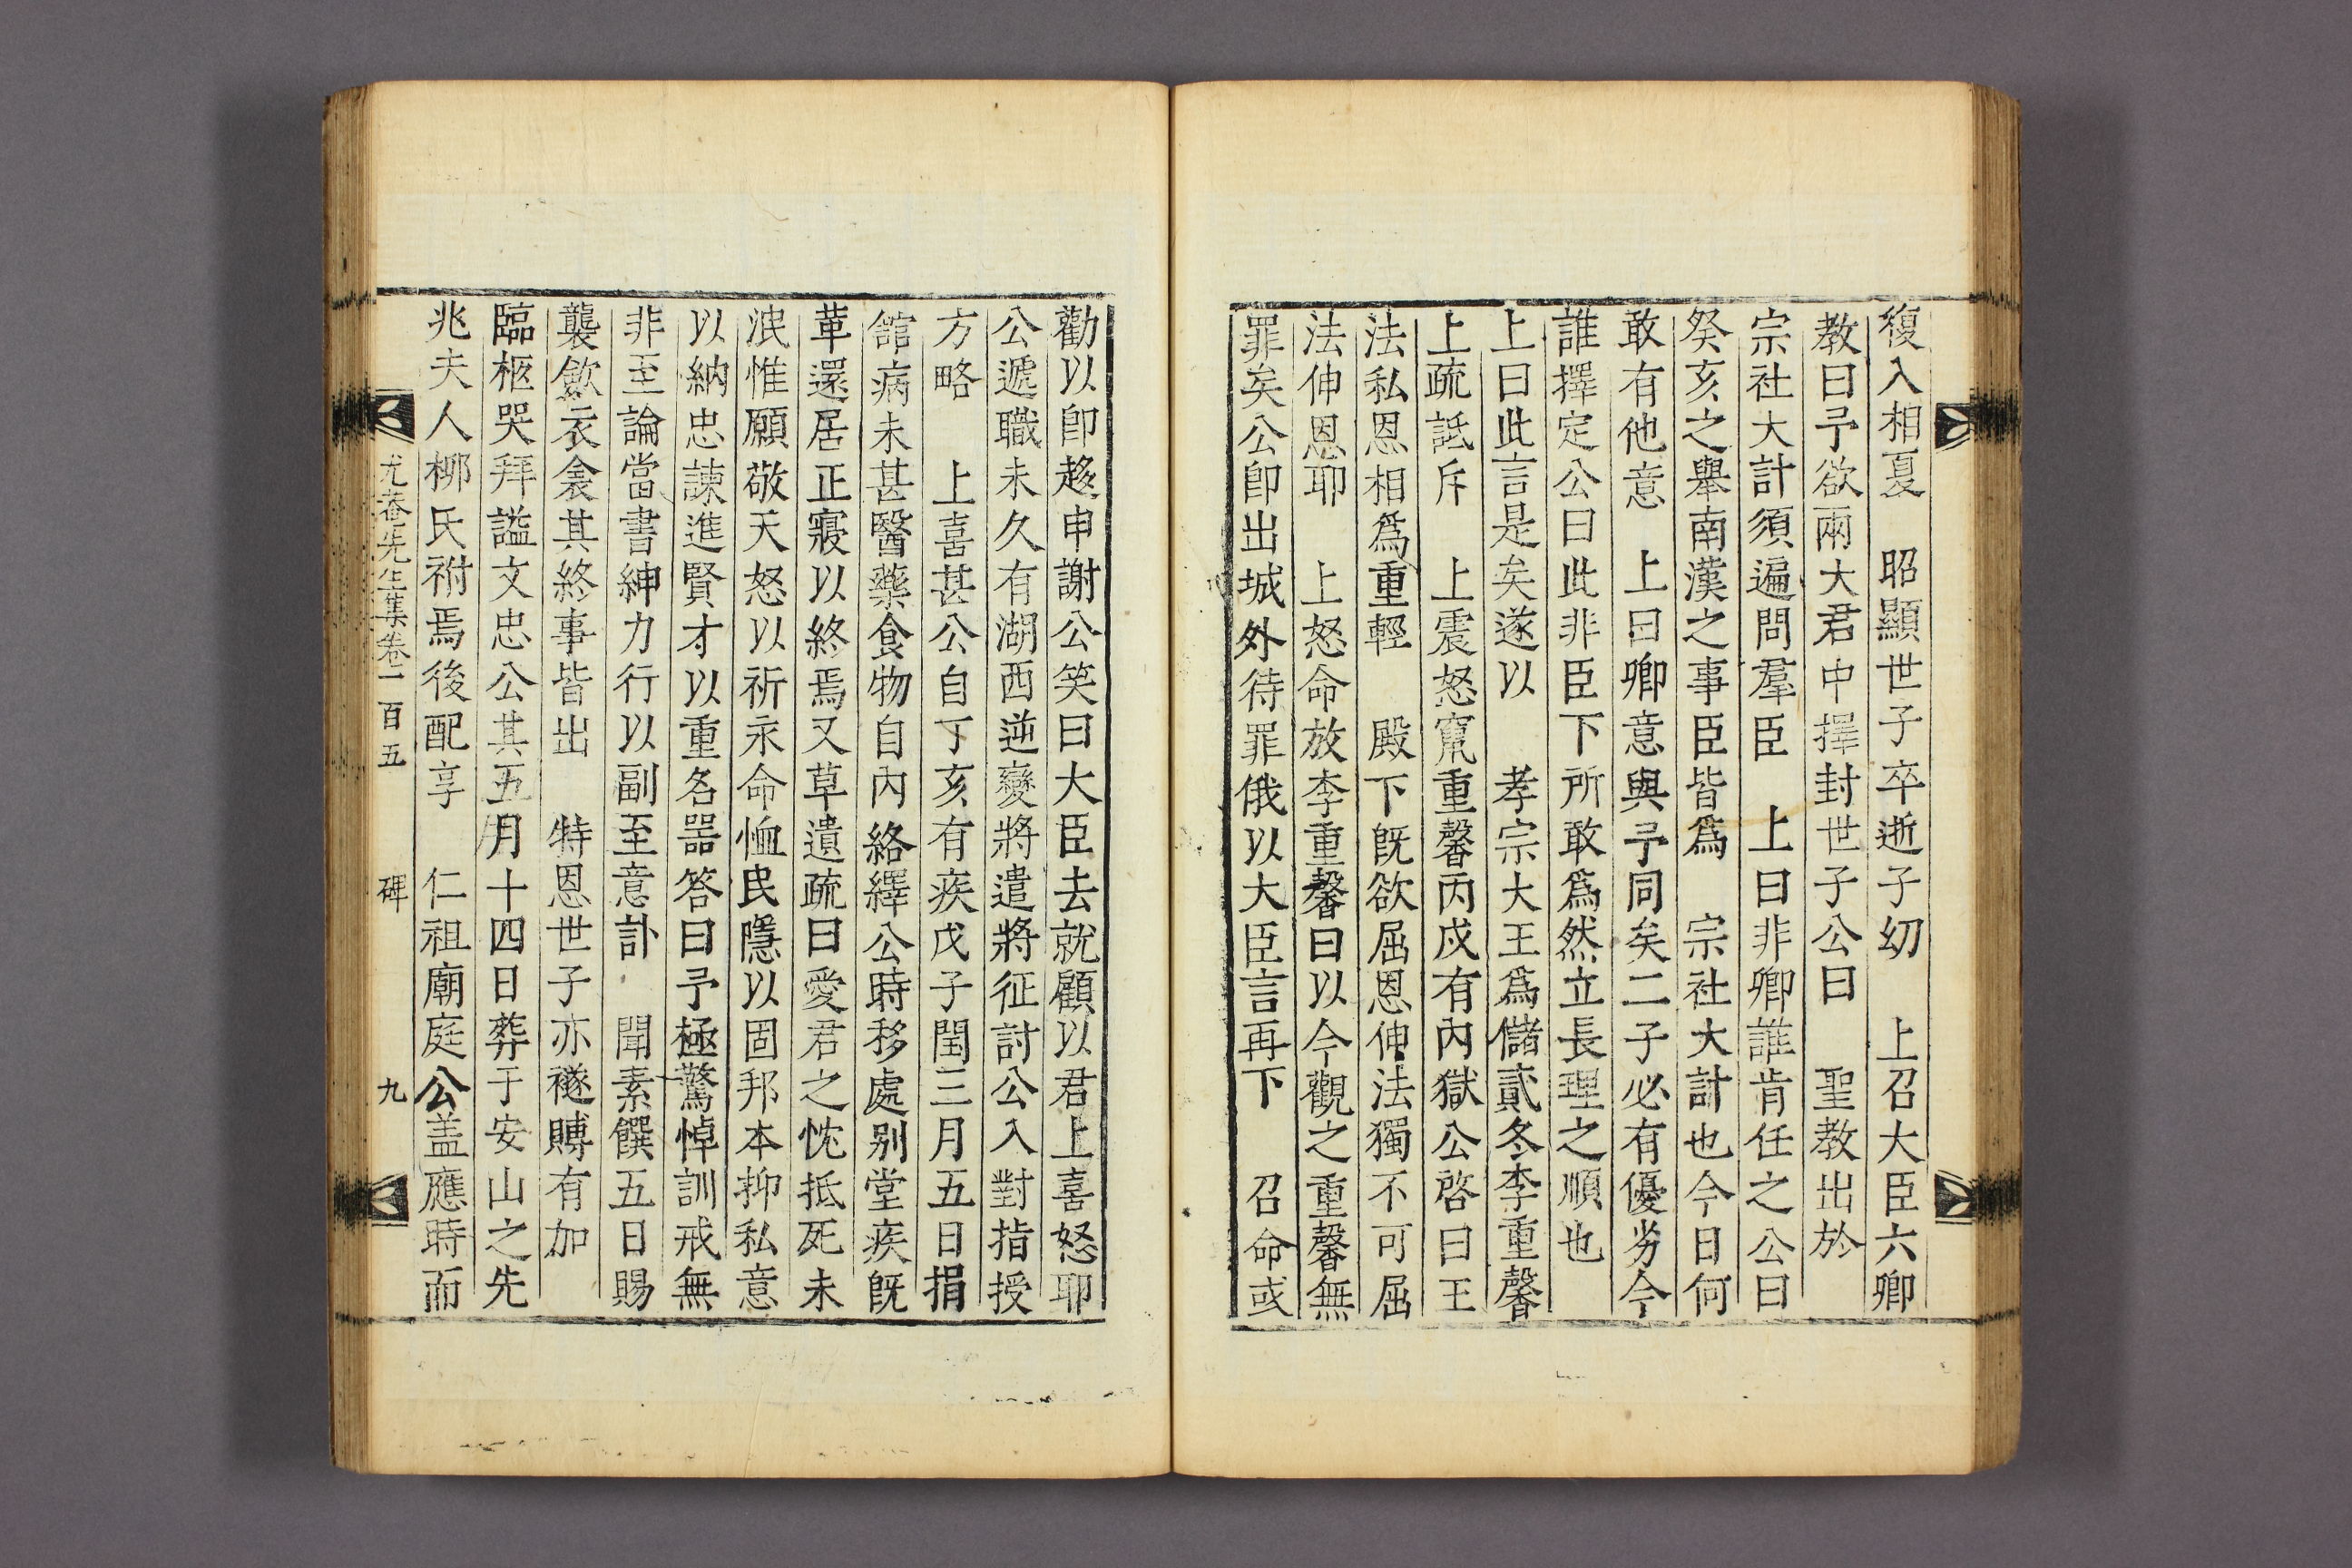 復入相夏　昭顯世子卒逝子幼　上召大臣六卿
教曰予欲兩大君中擇封世子公曰　聖教出於
宗社大計須遍問羣臣　上曰非卿誰肯任之公曰
癸亥之舉南漢之事臣皆爲　宗社大計也今日何
敢有他意　上曰卿意與予同矣二子必有優劣今
誰擇定公曰此非臣下所敢爲然立長理之順也
上曰此言是矣遂以　孝宗大王爲儲貳冬李重馨
上疏詆斥　上震怒竄重馨丙戌有內獄公啓曰王
法私恩相爲重輕　殿下旣欲屈恩伸法獨不可屈
法伸恩耶　上怒命放李重馨曰以今觀之重馨無
罪矣公卽出城外待罪俄以大臣言再下　召命或
勸以卽趍申謝公笑曰大臣去就顧以君上喜怒耶
公遞職未久有湖西逆變將遣將征討公入對指授
方略　上喜甚公自丁亥有疾戊子閏三月五日捐
舘病未甚醫藥食物自內絡繹公時移處別堂疾旣
革還居正寢以終焉又草遺疏曰愛君之忱抵死未
泯惟願敬天怒以祈永命恤民隱以固邦本抑私意
以納忠諫進賢才以重名器答曰予極驚悼訓戒無
非至論當書紳力行以副至意訃　聞素饌五日賜
襲歛衣衾其終事皆出　特恩世子亦襚賻有加
臨柩哭拜謚文忠公其五月十四日葬于安山之先
兆夫人柳氏祔焉後配享　仁祖廟庭公盖應時而
尤菴先生集卷一百五　碑　九